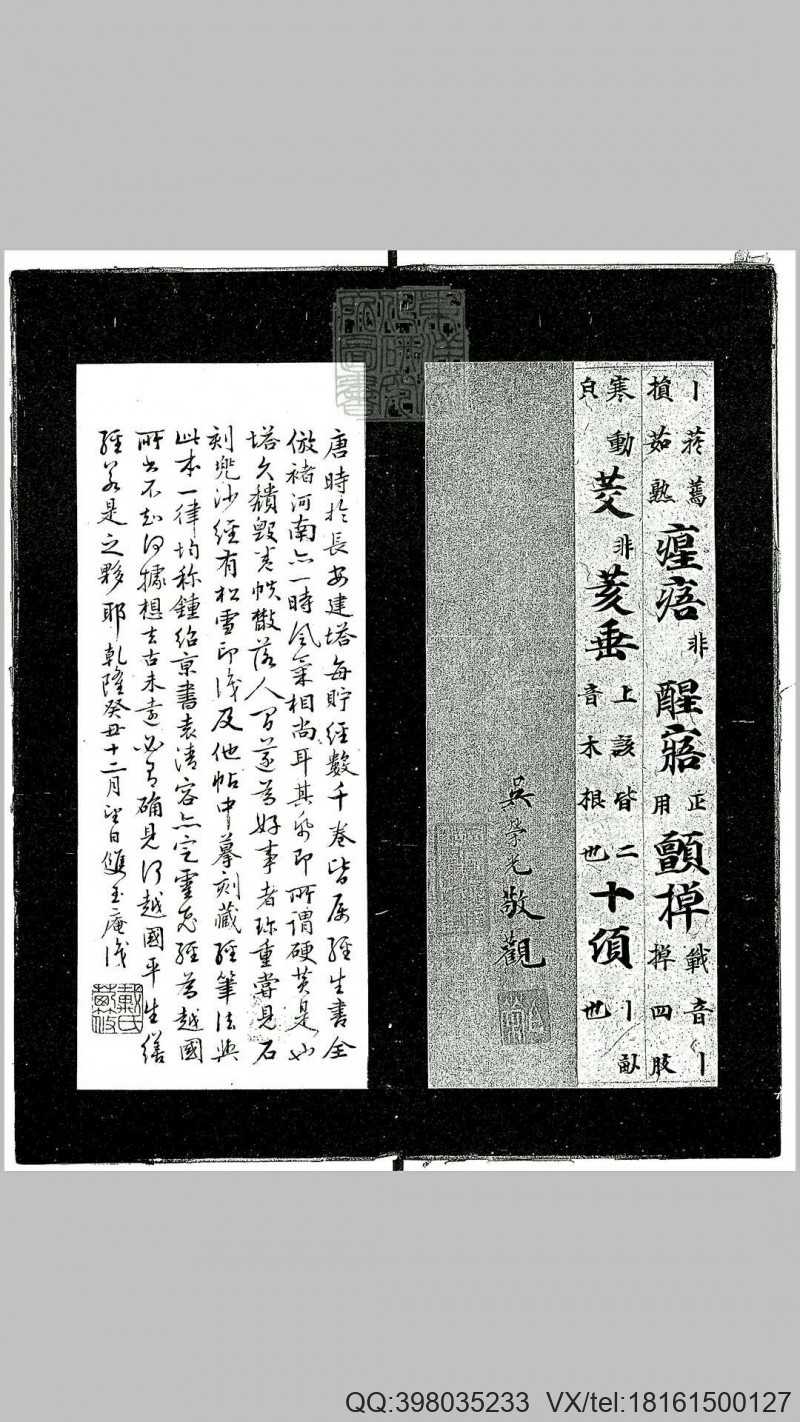 丨菸蔫
損茹熟瘂痦非醒寤正用顫掉戰音丨掉四肢
寒動
㒵茭非荄垂上該皆二音木根也十須丨畝也
吳學光敬觀
唐時於長安建塔每貯經數千卷皆属經生書全
倣褚河南亦一時風氣相尚耳其紙即所謂硬黄是也
塔久積毀卷帙散落人间遂爲好事者珎重嘗見石
刻兜沙經有松雪印識及他帖中摹刻藏經筆法與
此本一律均称鍾紹京書袁清容亦定靈飛經為越國
所書不知何據想去古未遠必有确見何越國平生繕
經若是之夥耶乾隆癸丑十二月望日雙玉庵識
QQ:398035233 VX/tel:18161500127